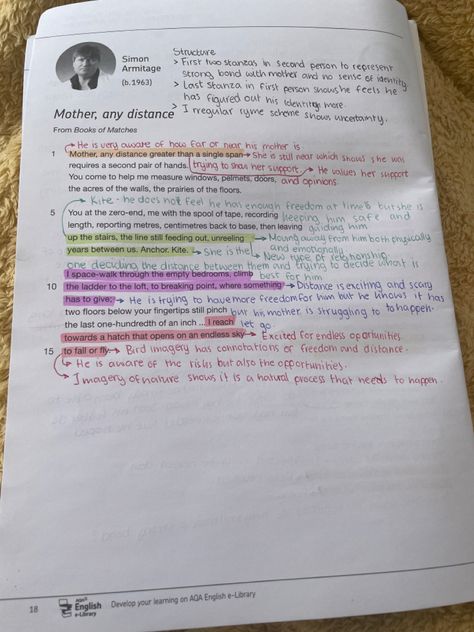 Simon
Armitage
(b.1963)
Structure
> First two stanzas in second person to represent
strong bond with mother and no sense of identity
> Last stanza in first person shows he feels he
has figured out his identity more.
> Irregular ryme scheme shows uncertainty.
Mother, any distance
From Books of Matches
He is very aware of how far or near his mother is
1 Mother, any distance greater than a single span → She is still near which shows she was
requires a second pair of hands. trying to show her support. → He values her support
You come to help me measure windows, pelmets, doors, and opinions.
the acres of the walls, the prairies of the floors.
Kite - he does not feel he has enough freedom at times but she is
5 You at the zero-end, me with the spool of tape, recording keeping him safe and
length, reporting metres, centimetres back to base, then leaving guiding him
up the stairs, the line still feeding out, unreeling → Moving away from him both physically
and emotionally
years between us. Anchor. Kite. → She is the → New type of relationship
one deciding the distance between them and trying to decide what is
I space-walk through the empty bedrooms, climb best for him
10 the ladder to the loft, to breaking point, where something → Distance is exciting and scary
has to give; → He is trying to have more freedom for him but he knows it has
two floors below your fingertips still pinch but his mother is struggling to to happen.
the last one-hundredth of an inch ... I reach let go
towards a hatch that opens on an endless sky → Excited for endless oportunities.
15 to fall or fly. → Bird imagery has connotations of freedom and distance.
→ He is aware of the risks but also the opportunities.
→ Imagery of nature shows it is a natural process that needs to happen.
18
AQA
English
e-Library
Develop your learning on AQA English e-Library